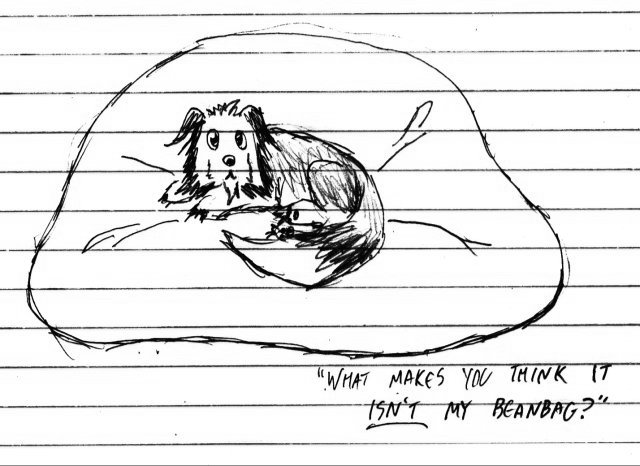 "WHAT MAKES YOU THINK IT
ISN'T MY BEANBAG?"